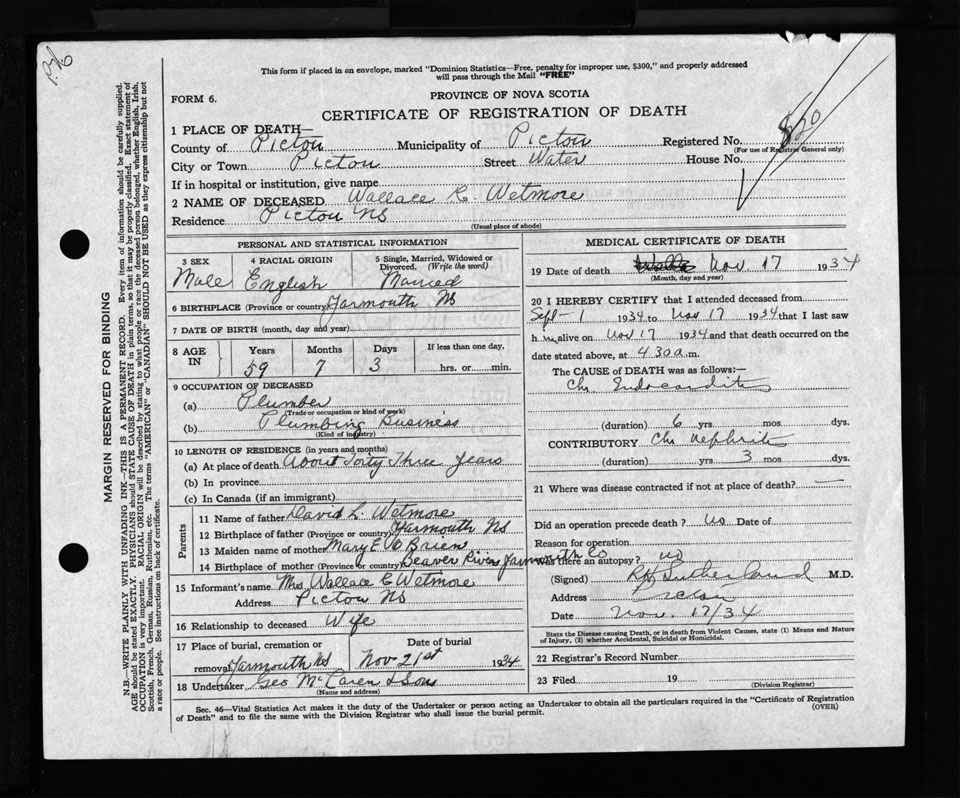 This form if placed in an envelope, marked "Dominion Statistics—Free, penalty for improper use, $300," and properly addressed
will pass through the Mail "FREE"
FORM 6.
PROVINCE OF NOVA SCOTIA
CERTIFICATE OF REGISTRATION OF DEATH
1 PLACE OF DEATH—
County of Pictou Municipality of Pictou Registered No.
(For use of Registrar General only)
City or Town Pictou Street Water House No.
If in hospital or institution, give name
2 NAME OF DECEASED Wallace C. Wetmore
Residence Pictou NS
(Usual place of abode)
PERSONAL AND STATISTICAL INFORMATION
3 SEX Male
4 RACIAL ORIGIN English
5 Single, Married, Widowed or Divorced. (Write the word) Married
6 BIRTHPLACE (Province or country) Yarmouth NS
7 DATE OF BIRTH (month, day and year)
8 AGE IN Years 59 Months 7 Days 3 If less than one day, hrs. or min.
9 OCCUPATION OF DECEASED
(a) Plumber
(Trade or occupation or kind of work)
(b) Plumbing Business
(Kind of industry)
10 LENGTH OF RESIDENCE (in years and months)
(a) At place of death About Forty Three years
(b) In province
(c) In Canada (if an immigrant)
Parents
11 Name of father David L. Wetmore
12 Birthplace of father (Province or country) Yarmouth NS
13 Maiden name of mother Mary E O'Brien
14 Birthplace of mother (Province or country) Beaver River Yarmouth Co
15 Informant's name Mrs Wallace C Wetmore
Address Pictou NS
16 Relationship to deceased Wife
17 Place of burial, cremation or removal Yarmouth NS Date of burial Nov 21st 1934
18 Undertaker Geo McLaren & Sons
(Name and address)
MEDICAL CERTIFICATE OF DEATH
19 Date of death Nov 17 1934
(Month, day and year)
20 I HEREBY CERTIFY that I attended deceased from
Sept- 1 1934 to Nov 17 1934 that I last saw
h im alive on Nov 17 1934 and that death occurred on the
date stated above, at 4 30 a.m.
The CAUSE OF DEATH was as follows:—
Chr Endocarditis
(duration) 6 yrs mos dys.
CONTRIBUTORY Chr nephritis
(duration) yrs 3 mos dys.
21 Where was disease contracted if not at place of death? —
Did an operation precede death? no Date of
Reason for operation
Was there an autopsy? no
(Signed) Sutherland M.D.
Address Pictou
Date Nov. 17/34
State the Disease causing Death, or in death from Violent Causes, state (1) Means and Nature
of Injury, (2) whether Accidental, Suicidal or Homicidal.
22 Registrar's Record Number
23 Filed 19
(Division Registrar)
Sec. 46—Vital Statistics Act makes it the duty of the Undertaker or person acting as Undertaker to obtain all the particulars required in the "Certificate of Registration
of Death" and to file the same with the Division Registrar who shall issue the burial permit.
(OVER)
MARGIN RESERVED FOR BINDING
N.B.—WRITE PLAINLY WITH UNFADING INK—THIS IS A PERMANENT RECORD. Every item of information should be carefully supplied.
AGE should be stated EXACTLY. PHYSICIANS should STATE CAUSE OF DEATH in plain terms, so that it may be properly classified. Exact statement of
OCCUPATION is very important. RACIAL ORIGIN will be described by stating to what people or race the deceased person belonged, whether English, Irish,
Scottish, French, German, Russian, Ruthenian, etc. The terms "AMERICAN" or "CANADIAN" SHOULD NOT BE USED as they express citizenship but not
a race or people. See instructions on back of certificate.